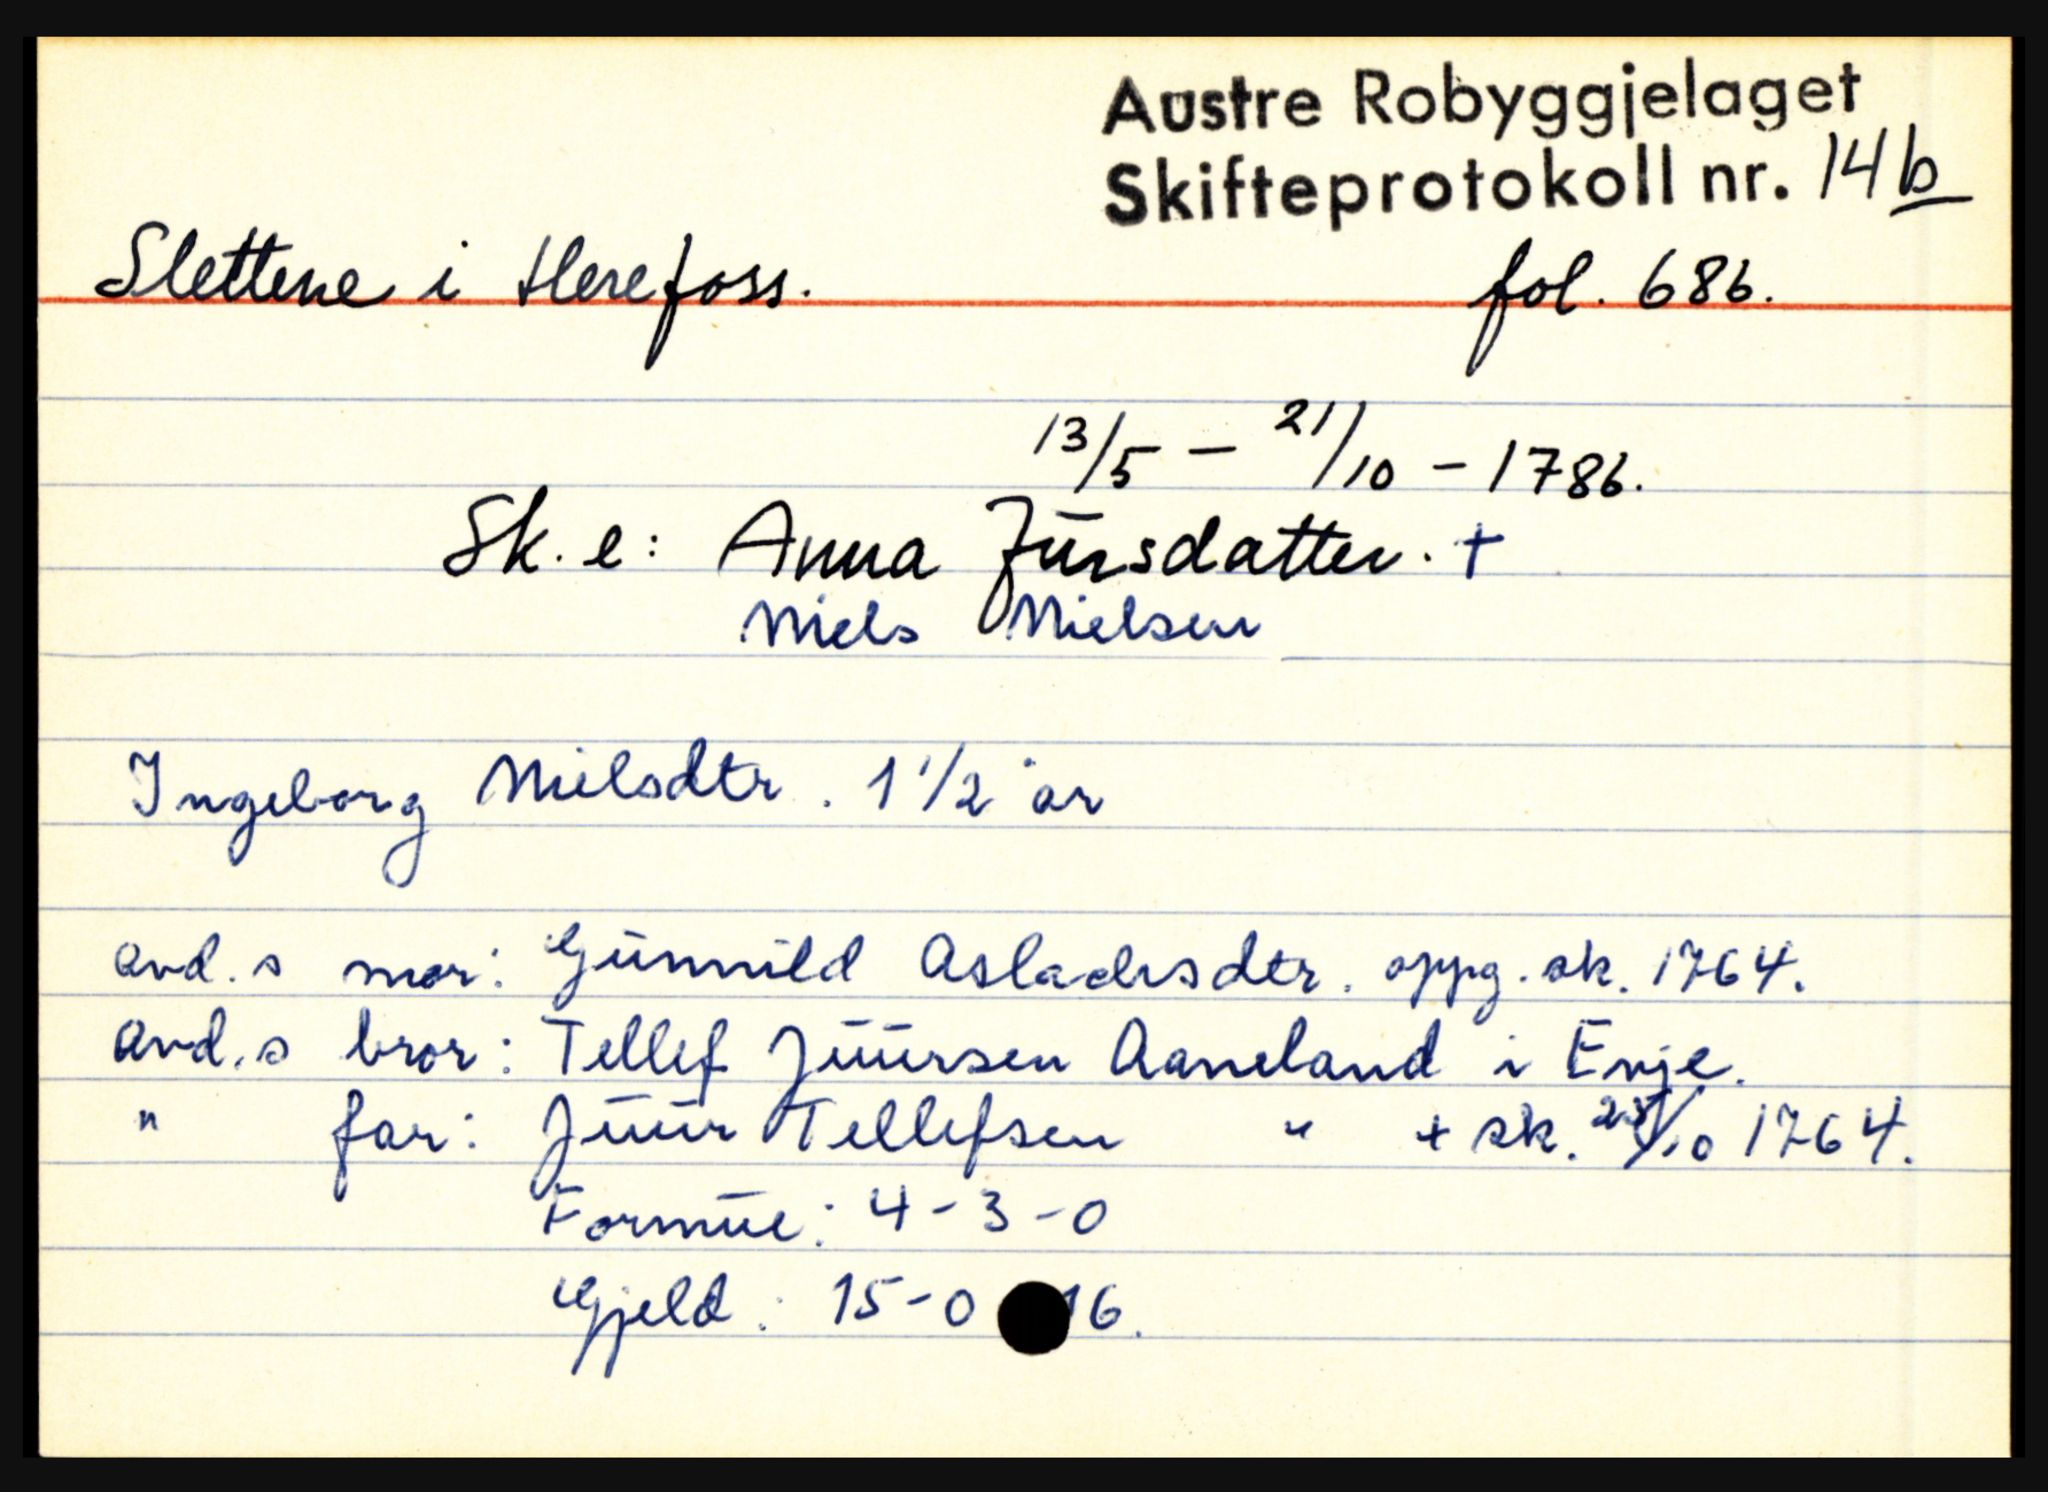 Austre Robyggjelaget
Skifteprotokoll nr. 14b
Slettene i Herefoss. fol. 686.
13/5 - 21/10 - 1786.
Sk. e: Anna Jursdatter. +
Niels Nielsen
Ingeborg Nielsdtr. 1 1/2 år
avd.s mor: Gunnild Aslachsdtr. oppg. sk. 1764.
Avd.s bror: Tellef Juursen Aaneland i Evje.
" far: Juur Tellefsen " + sk. /10 1764.
Formue: 4-3-0
Gjeld: 15-0 16.